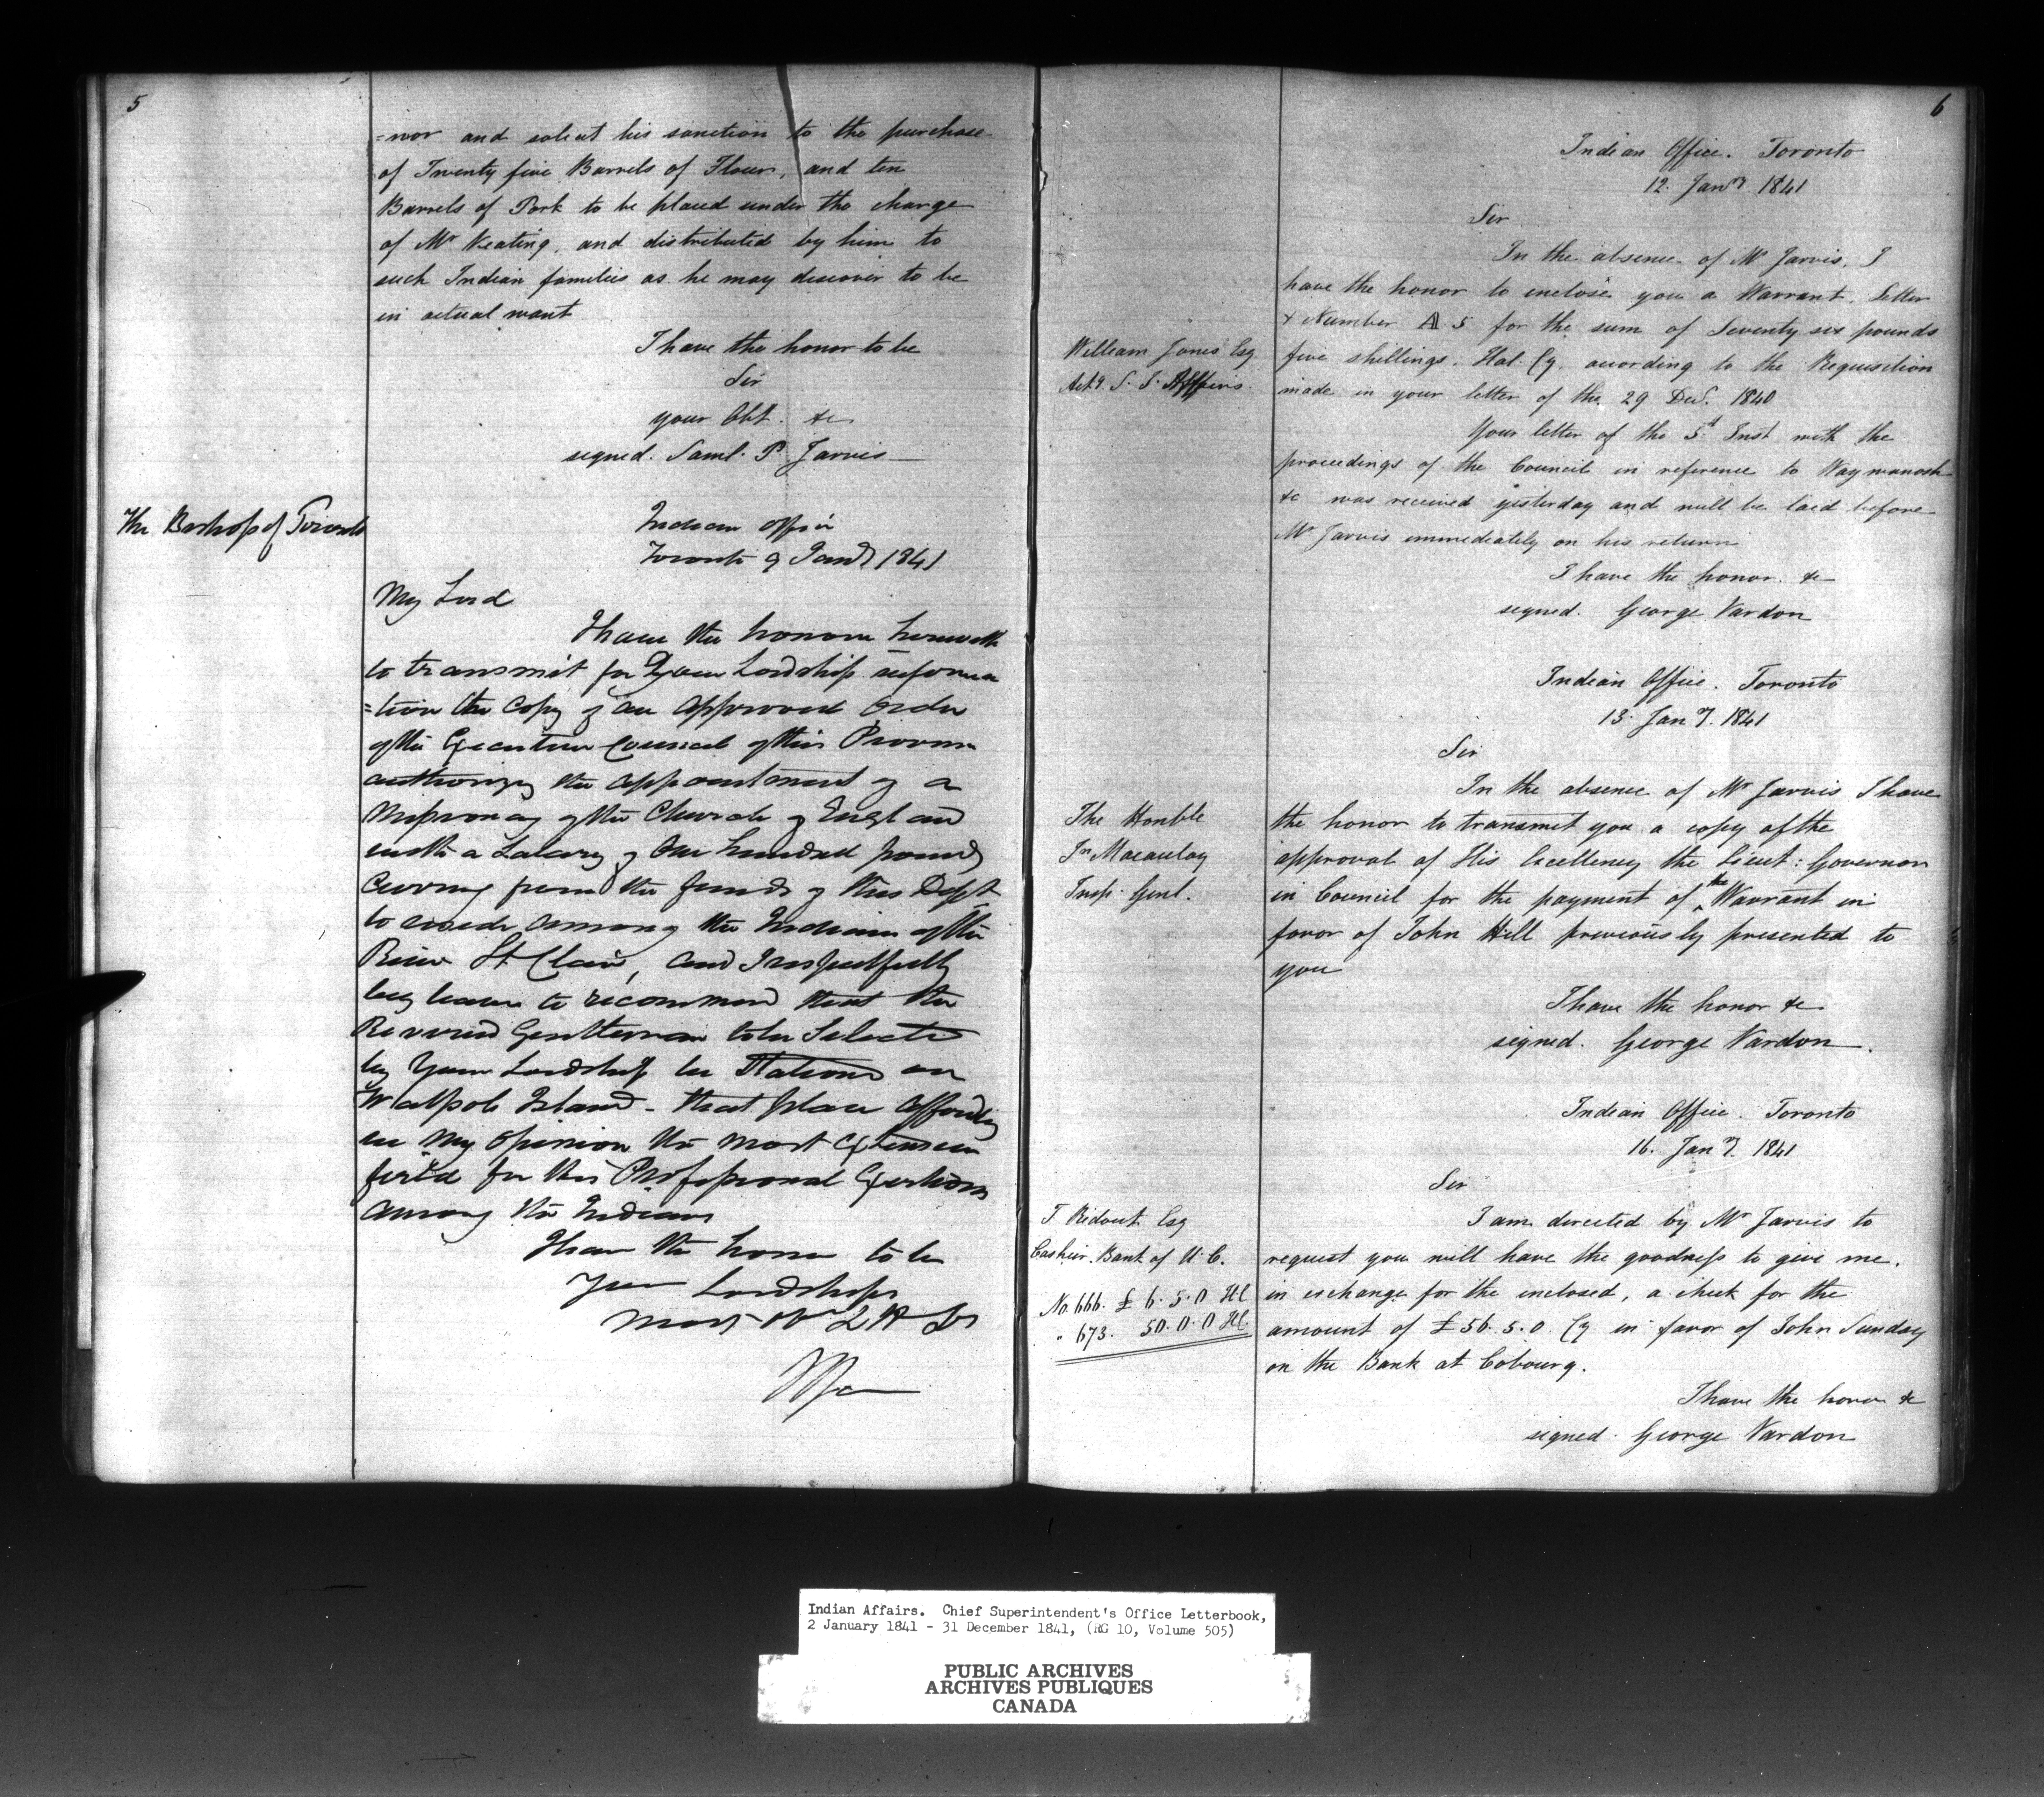 5
=nor and solicit his sanction to the purchase
of Twenty five Barrels of Flour, and ten
Barrels of Pork to be placed under the charge
of Mr Keating, and distributed by him to
such Indian families as he may discover to be
in actual want
I have the honor to be
Sir
your Obt. &c
signed. Saml. P. Jarvis
The Bishop of Toronto
Indian Office
Toronto 9 Jany 1841
My Lord
I have the honour herewith
to transmit for Your Lordship informa
=tion the Copy of an approved Order
of the Executive Council of this Province
authorizing the appointment of a
Missionary of the Church of England
with a Salary of One hundred pounds
Currency from the funds of this Dept
to reside among the Indians of the
River St Clair, and I respectfully
beg leave to recommend that the
Reverend Gentleman to be Selected
by Your Lordship be Stationed on
Walpole Island - that place affording
in my opinion the most extensive
field for his Professional Exertions
among the Indians
I have the honor to be
Your Lordships
6
Indian Office. Toronto
12. Jany. 1841
Sir
In the absence of Mr Jarvis, I
have the honor to inclose you a Warrant, Letter
& Number A 5 for the sum of Seventy six pounds
William Jones Esq
five shillings. Hal. Cy. according to the Requisition
Actg. S. I. Affairs.
made in your letter of the 29 Decr. 1840
Your letter of the 5th Inst with the
proceedings of the Council in reference to Waywanosh
&c was received yesterday and will be laid before
Mr Jarvis immediately on his return
I have the honor. &c
signed. George Vardon
Indian Office. Toronto
13. Jany. 1841
Sir
In the absence of Mr Jarvis I have
The Honble
the honor to transmit you a copy of the
Jn Macaulay
approval of His Excellency the Lieut: Governor
Insp. Genl.
in Council for the payment of the Warrant in
favor of John Hill previously presented to
you
I have the honor &c
signed. George Vardon.
Indian Office. Toronto
16. Jany. 1841
Sir
T Ridout Esq
I am directed by Mr Jarvis to
Cashier. Bank of U. C.
request you will have the goodness to give me.
No. 666. £ 6. 5. 0 HC
in exchange for the enclosed, a check for the
" 673. 50. 0. 0 HC
amount of £56. 5. 0. Cy in favor of John Sunday
on the Bank at Cobourg.
I have the honor &c
signed. George Vardon
Indian Affairs. Chief Superintendent's Office Letterbook,
2 January 1841 - 31 December 1841, (RG 10, Volume 505)
PUBLIC ARCHIVES
ARCHIVES PUBLIQUES
CANADA